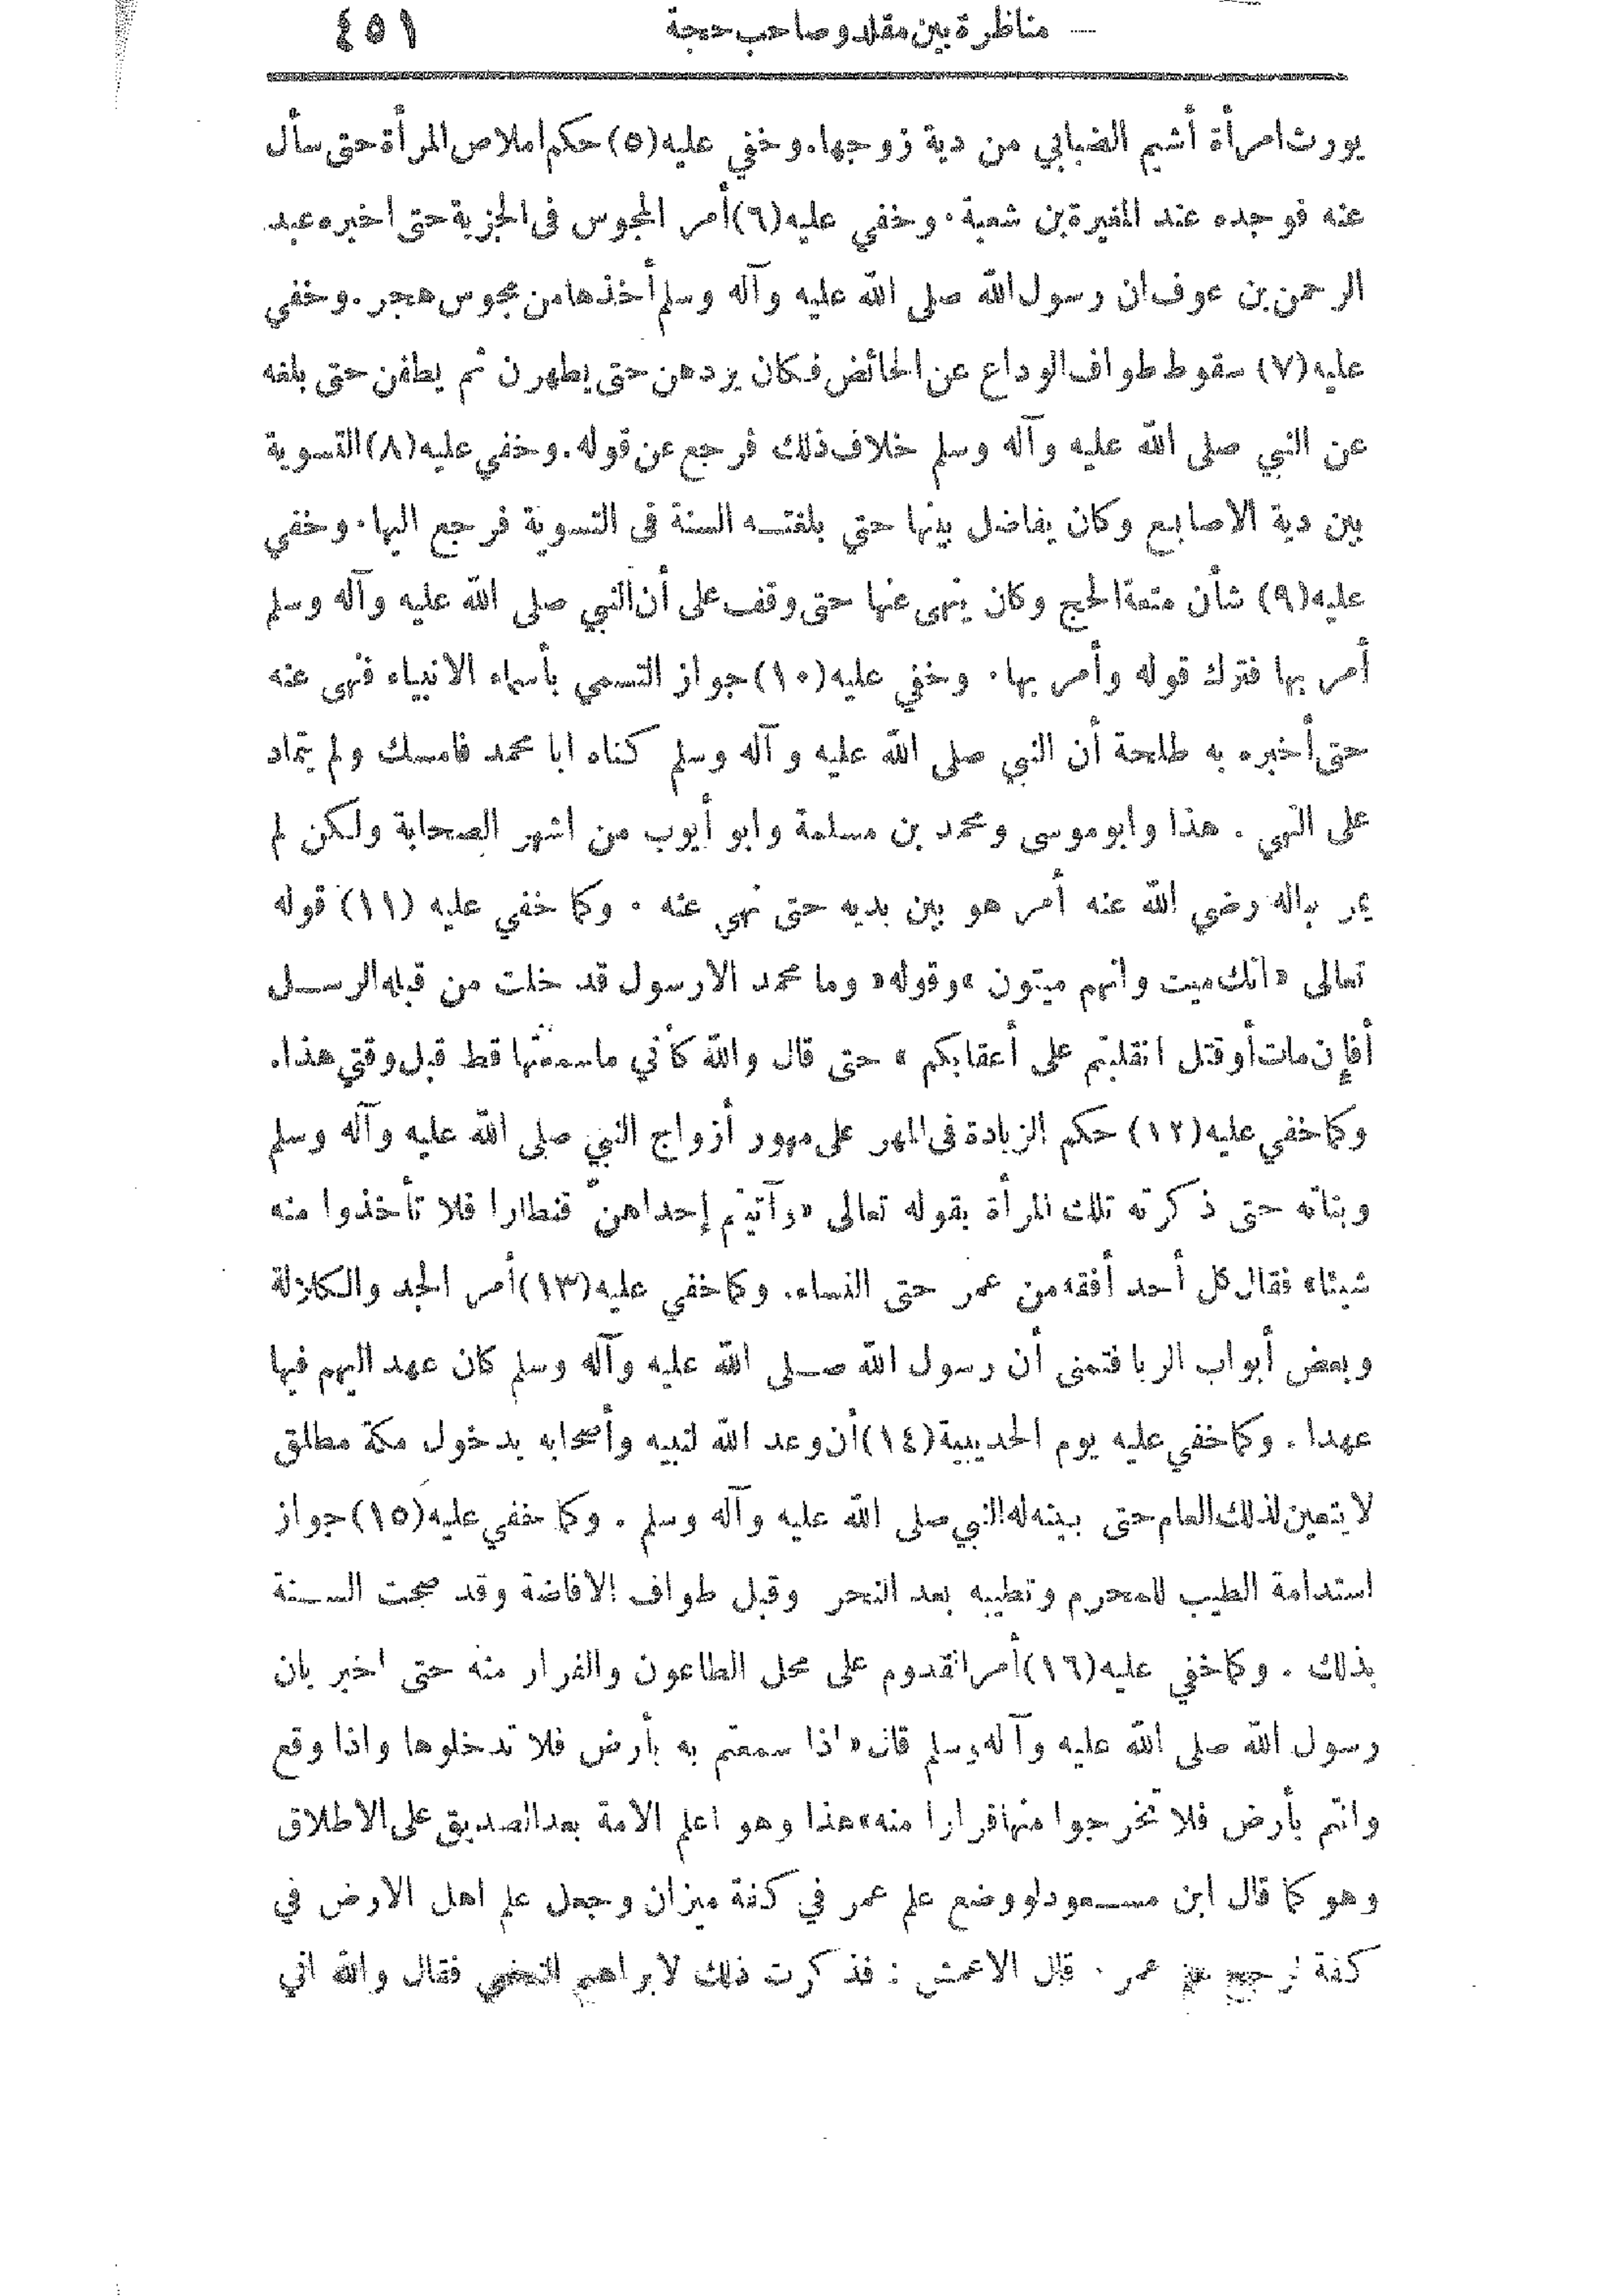 مناظرة بين مقلد وصاحب حجة ٤٥١
يورث امرأة أشيم الضبابي من دية زوجها. وخفي عليه (٥) حكم املاص المرأة حتى سأل
عنه فوجده عند المغيرة بن شعبة. وخفي عليه (٦) أمر المجوس في الجزية حتى اخبره عبد
الرحمن بن عوف ان رسول الله صلى الله عليه وآله وسلم أخذها من مجوس هجر. وخفي
عليه (٧) سقوط طواف الوداع عن الحائض فكان يردهن حتى يطهرن ثم يطفن حتى بلغه
عن النبي صلى الله عليه وآله وسلم خلاف ذلك فرجع عن قوله. وخفي عليه (٨) التسوية
بين دية الاصابع وكان يفاضل بينها حتى بلغتـه السنة في التسوية فرجع اليها. وخفي
عليه (٩) شأن متعة الحج وكان ينهى عنها حتى وقف على أن النبي صلى الله عليه وآله وسلم
أمر بها فترك قوله وأمر بها. وخفي عليه (١٠) جواز التسمي بأسماء الانبياء فنهى عنه
حتى أخبره به طلحة أن النبي صلى الله عليه وآله وسلم كناه ابا محمد فامسك ولم يتماد
على النهي. هذا وابو موسى ومحمد بن مسلمة وابو أيوب من اشهر الصحابة ولكن لم
يمر بباله رضي الله عنه أمر هو بين يديه حتى نهي عنه. وكما خفي عليه (١١) قوله
تعالى «انك ميت وانهم ميتون» وقوله «وما محمد الا رسول قد خلت من قبله الرسـل
أفإن مات أو قتل انقلبتم على أعقابكم» حتى قال والله كأني ما سمعتها قط قبل وقتي هذا.
وكما خفي عليه (١٢) حكم الزيادة في المهر على مهور أزواج النبي صلى الله عليه وآله وسلم
وبناته حتى ذكرته تلك المرأة بقوله تعالى «وآتيتم إحداهنّ قنطارا فلا تأخذوا منه
شيئا» فقال كل أحد أفقه من عمر حتى النساء. وكما خفي عليه (١٣) أمر الجد والكلالة
وبعض أبواب الربا فتمنى أن رسول الله صـلى الله عليه وآله وسلم كان عهد اليهم فيها
عهدا. وكما خفي عليه يوم الحديبية (١٤) أن وعد الله لنبيه وأصحابه بدخول مكة مطلق
لا يتعين لذلك العام حتى بينه له النبي صلى الله عليه وآله وسلم. وكما خفي عليه (١٥) جواز
استدامة الطيب للمحرم وتطيبه بعد النحر وقبل طواف الافاضة وقد صحت السـنة
بذلك. وكما خفي عليه (١٦) أمر القدوم على محل الطاعون والفرار منه حتى اخبر بان
رسول الله صلى الله عليه وآله وسلم قال «اذا سمعتم به بأرض فلا تدخلوها واذا وقع
وانتم بأرض فلا تخرجوا منها فرارا منه» هذا وهو اعلم الامة بعد الصديق على الاطلاق
وهو كما قال ابن مسـعود لو وضع علم عمر في كفة ميزان وجعل علم اهل الارض في
كفة لرجح علم عمر. قال الاعمش: فذكرت ذلك لابراهيم النخعي فقال والله اني